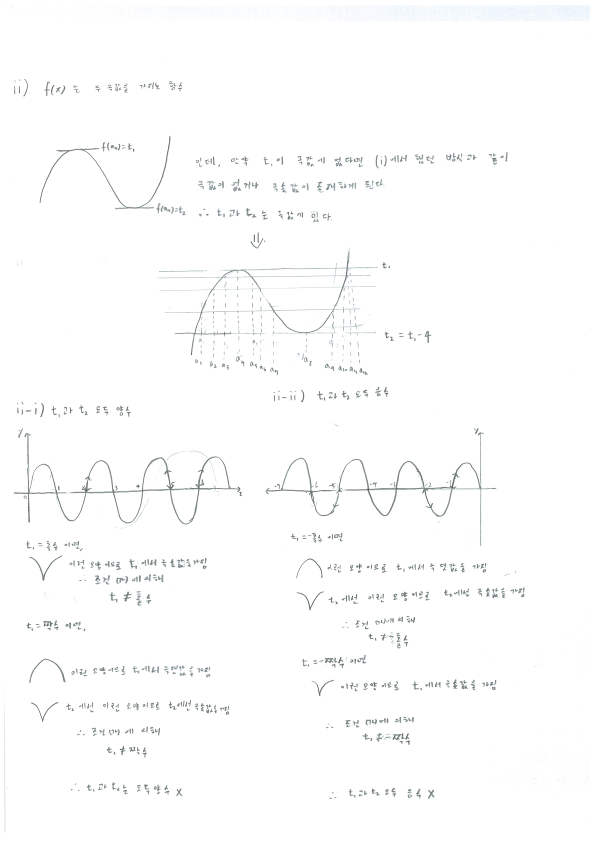 ii) f(x) 는 두 극값을 가지는 함수
f(a₄)=t₁
인데, 만약 t₁이 극값에 없다면 (i)에서 했던 방식과 같이
극값이 없거나 극솟값이 존재하게 된다.
f(a₈)=t₂
∴ t₁과 t₂는 극값에 있다.
⇓
t₁
t₂ = t₁-4
a₁ a₂ a₃ a₄ a₅ a₆ a₇ a₈ a₉ a₁₀ a₁₁ a₁₂
ii-i) t₁과 t₂ 모두 양수
ii-ii) t₁과 t₂ 모두 음수
y
1 2 3 4 5 6 7 x
y
-7 -6 -5 -4 -3 -2 -1
t₁ = 홀수 이면,
이런 모양이므로 t₁에서 극솟값을 가짐
∴ 조건 (나)에 의해
t₁ ≠ 홀수
t₁ = 짝수 이면,
이런 모양이므로 t₁에서 극댓값을 가짐
t₂에선 이런 모양이므로 t₂에선 극솟값을 가짐
∴ 조건 (나)에 의해
t₁ ≠ 짝수
∴ t₁과 t₂는 모두 양수 X
t₁ = -홀수 이면
이런 모양이므로 t₁에서 극댓값을 가짐
t₂에선 이런 모양이므로 t₂에선 극솟값을 가짐
∴ 조건 (나)에 의해
t₁ ≠ -홀수
t₁ = -짝수 이면
이런 모양이므로 t₁에서 극솟값을 가짐
∴ 조건 (나)에 의해
t₁ ≠ -짝수
∴ t₁과 t₂ 모두 음수 X